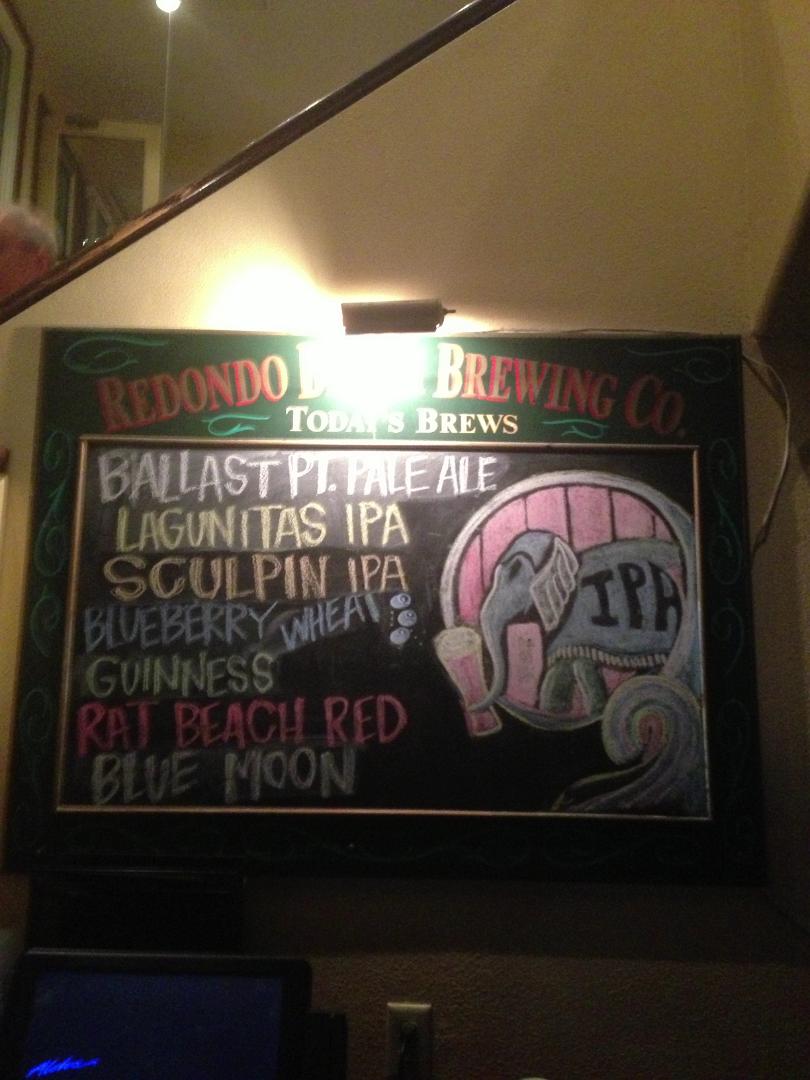 REDONDO BREWING CO.
TODAY'S BREWS
BALLAST PT. PALE ALE
LAGUNITAS IPA
SCULPIN IPA
BLUEBERRY WHEAT
GUINNESS
RAT BEACH RED
BLUE MOON
IPA
Aloha